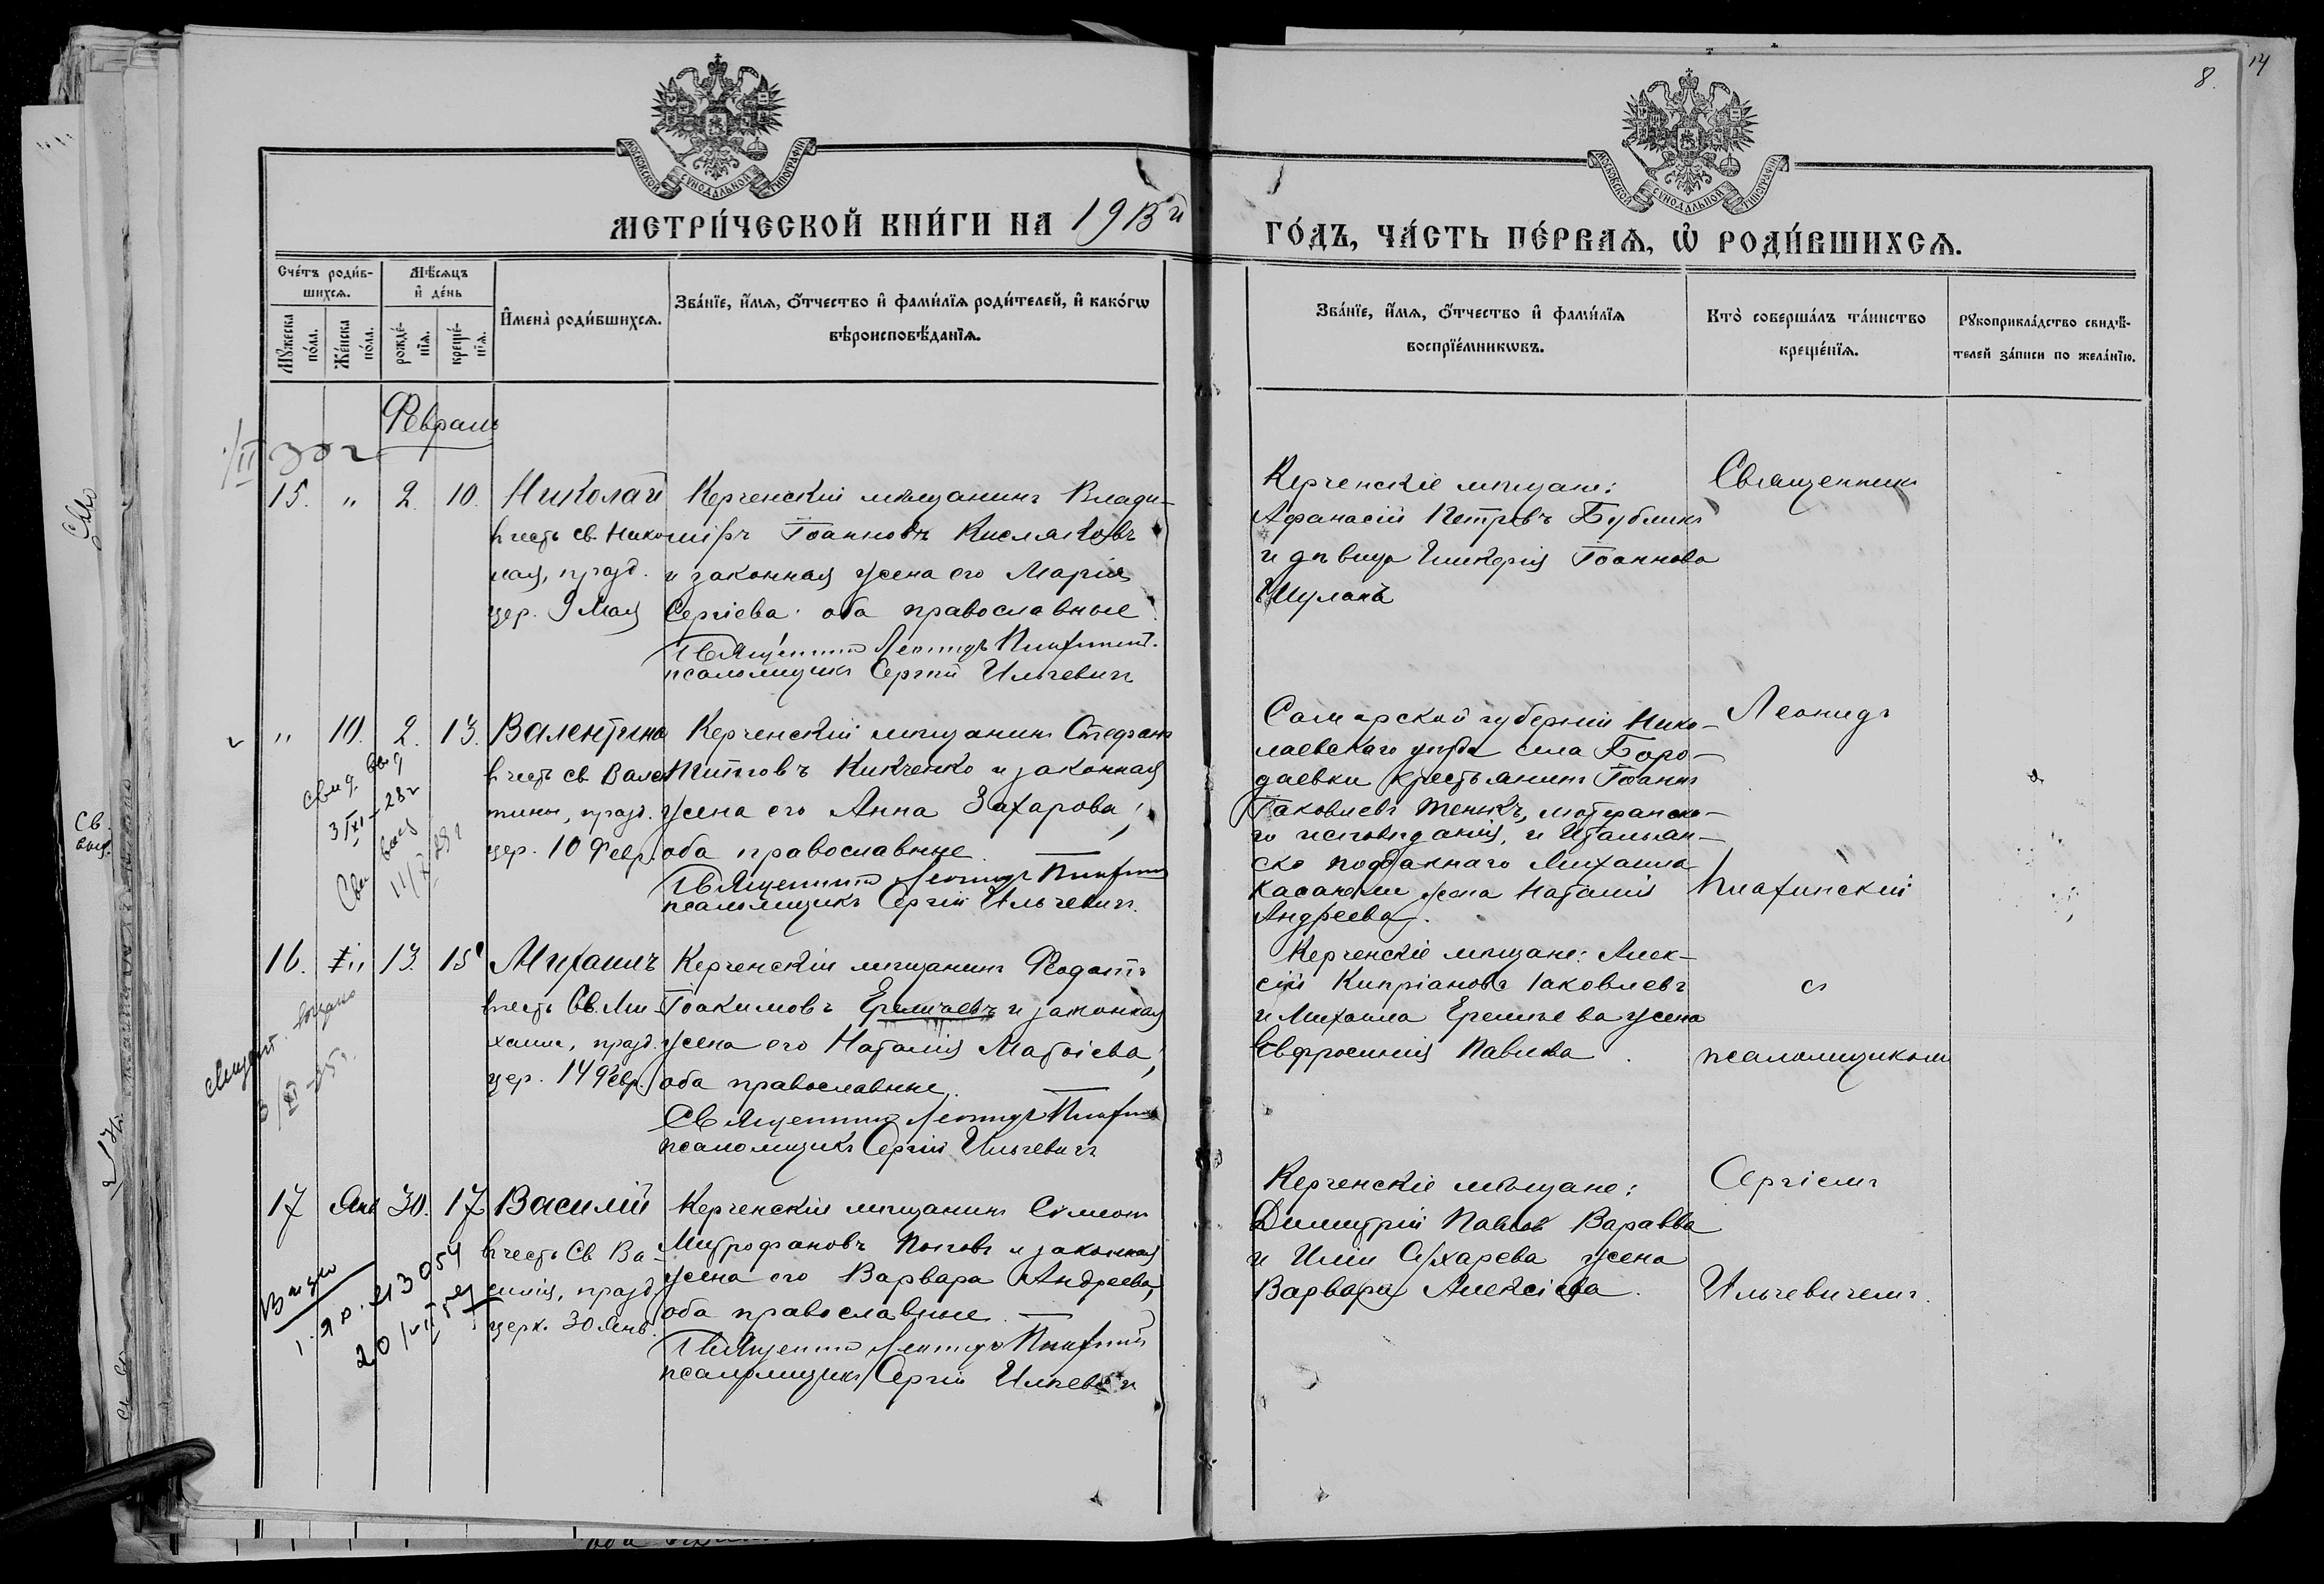 8.
14
МОСКОВСКОЙ СѴНОДАЛЬНОЙ ТИПОГРАФІИ
МОСКОВСКОЙ СѴНОДАЛЬНОЙ ТИПОГРАФІИ
МЕТРИ́ЧЕСКОЙ КНИ́ГИ НА 1913й
ГО́ДЪ, ЧА́СТЬ ПЕ́РВАѦ, Ѡ҆ РОДИ́ВШИХСѦ.
Сче́тъ роди́в-
шихсѧ.
Мꙋ́жеска по́ла.
Же́нска по́ла.
Мѣ́сѧцъ и҆ де́нь
рожде́-
нїѧ.
креще́-
нїѧ.
И҆мена̀ роди́вшихсѧ.
Зва́нїе, и҆́мѧ, ѻ҆́тчество и҆ фами́лїѧ роди́телей, и҆ како́гѡ
вѣроисповѣ́данїѧ.
Зва́нїе, и҆́мѧ, ѻ҆́тчество и҆ фами́лїѧ
воспрїе́мникѡвъ.
Кто̀ соверша́лъ та́инство
креще́нїѧ.
Рꙋкоприкла́дство свидѣ́-
телей за́писи по жела́нїю.
Февраль
15. " 2. 10. Николай
в честь св. Нико
лая, празд.
цер. 9 Мая
Керченскій мѣщанинъ Влади-
міръ Іоанновъ Кисляковъ
и законная жена его Марія
Сергіева оба православные
Священникъ Леонидъ
псаломщикъ Сергій Ильчевичъ
Керченскіе мѣщане:
Афанасій Петровъ Бубликъ
и дѣвица Гликерія Іоаннова
Священникъ
" 10. 2. 13. Валентина
в честь св. Вален
тины, празд.
цер. 10 Февр.
Керченскій мѣщанинъ Стефанъ
Титовъ Кикченко и законная
жена его Анна Захарова,
оба православные
Священникъ Леонидъ
псаломщикъ Сергій Ильчевичъ
Самарской губерніи Нико-
лаевскаго уѣзда села Боро-
даевки крестьянинъ Іоаннъ
Іаковлевъ лютеранска-
го исповѣданія, и Итальян-
ско подданнаго Михаила
жена Наталія
Андреева.
Леонидъ
16. 13. 15 Михаилъ
в честь Св. Ми
хаила, празд.
цер. 14 Февр.
Керченскій мѣщанинъ Феодотъ
Іоакимовъ Еремѣевъ и законная
жена его Наталія Матѳіева,
оба православные.
Священникъ Леонидъ
псаломщикъ Сергій Ильчевичъ
Керченскіе мѣщане: Алек-
сій Кипріановъ Іаковлевъ
и Михаила Еремѣева жена
Евфросинія Павлова.
съ
псаломщикомъ
17 Янв 30. 17 Василій
в честь Св Ва-
силія, празд.
церк. 30 Янв.
Керченскій мѣщанинъ Симеонъ
Митрофановъ Поповъ и законная
жена его Варвара Андреева,
оба православные
Священникъ Леонидъ
псаломщикъ Сергій
Керченскіе мѣщане:
Димитрій Павловъ Варавва
и Иліи Сухарева жена
Варвара Алексіева.
Сергіемъ
Ильчевичемъ.